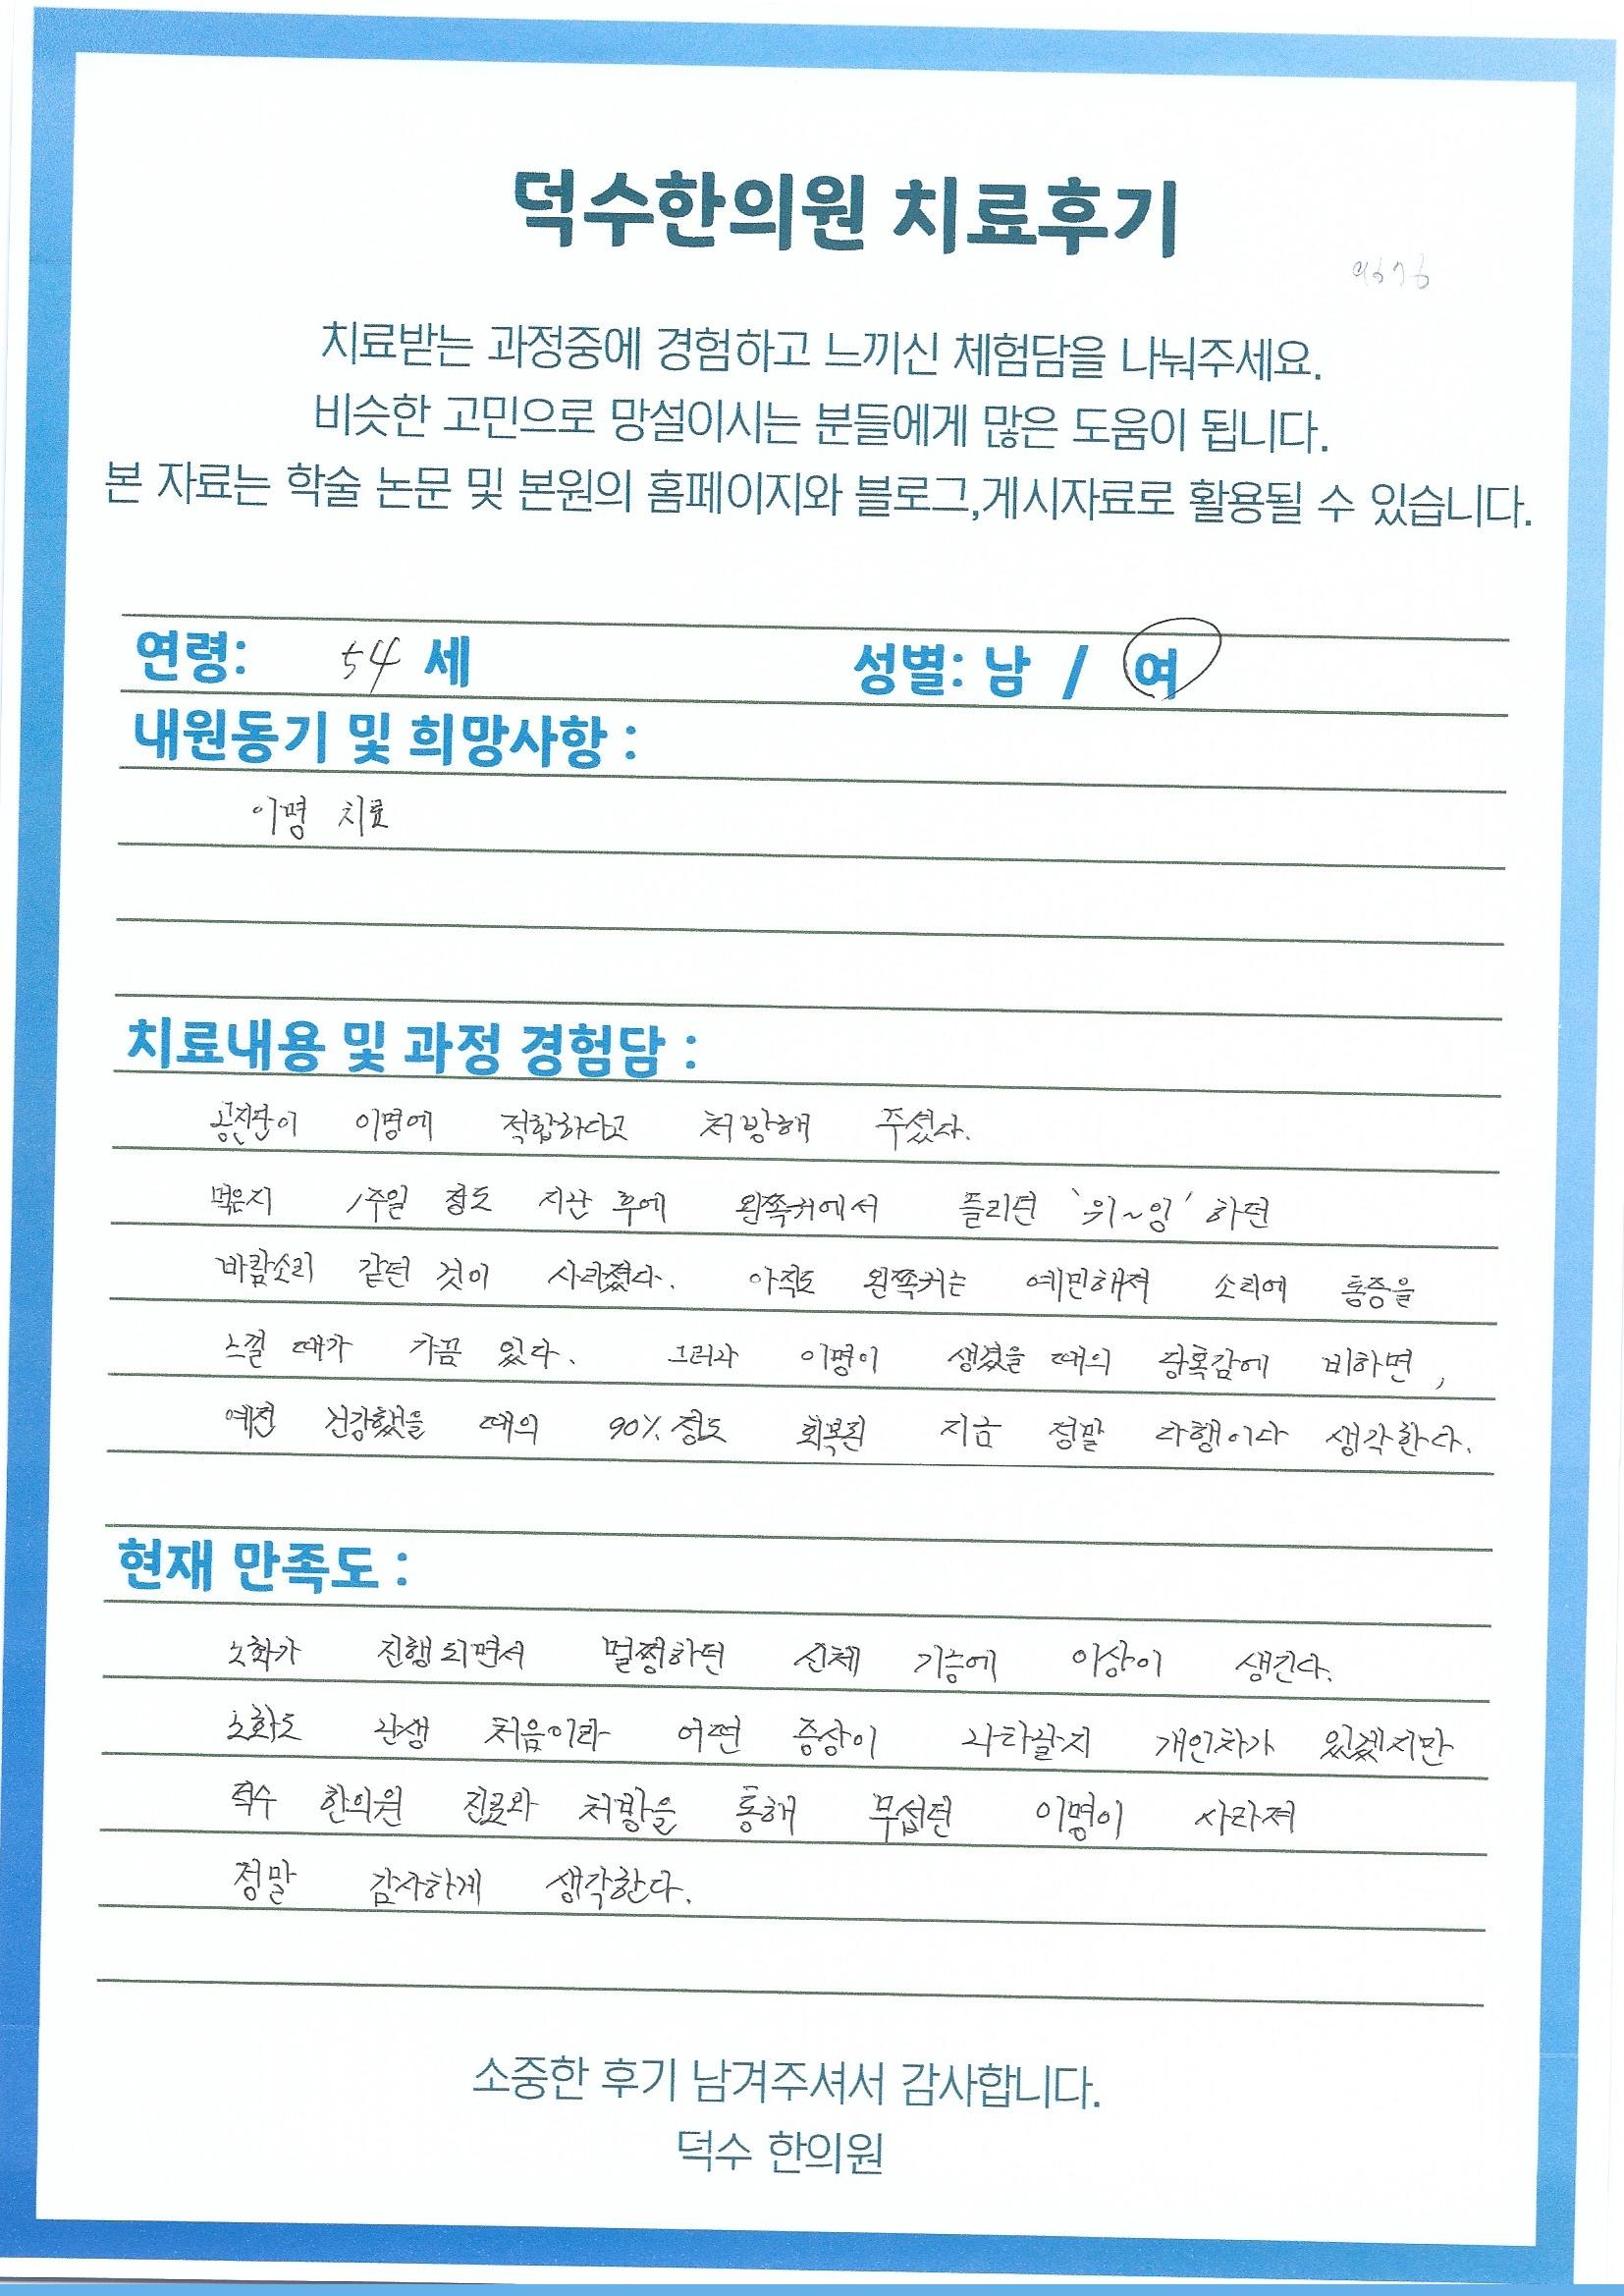 덕수한의원 치료후기
9676
치료받는 과정중에 경험하고 느끼신 체험담을 나눠주세요.
비슷한 고민으로 망설이시는 분들에게 많은 도움이 됩니다.
본 자료는 학술 논문 및 본원의 홈페이지와 블로그,게시자료로 활용될 수 있습니다.
연령: 54 세 성별: 남 / 여
내원동기 및 희망사항 :
이명 치료
치료내용 및 과정 경험담 :
공진단이 이명에 적합하다고 처방해 주셨다.
먹은지 1주일 정도 지난 후에 왼쪽귀에서 들리던 '위~잉' 하던
바람소리 같던 것이 사라졌다. 아직도 왼쪽귀는 예민해져 소리에 통증을
느낄 때가 가끔 있다. 그러나 이명이 생겼을 때의 당혹감에 비하면,
예전 건강했을 때의 90% 정도 회복된 지금 정말 다행이다 생각한다.
현재 만족도 :
노화가 진행되면서 멀쩡하던 신체 기능에 이상이 생긴다.
노화도 난생 처음이라 어떤 증상이 나타날지 개인차가 있겠지만
덕수 한의원 진료와 처방을 통해 무섭던 이명이 사라져
정말 감사하게 생각한다.
소중한 후기 남겨주셔서 감사합니다.
덕수 한의원